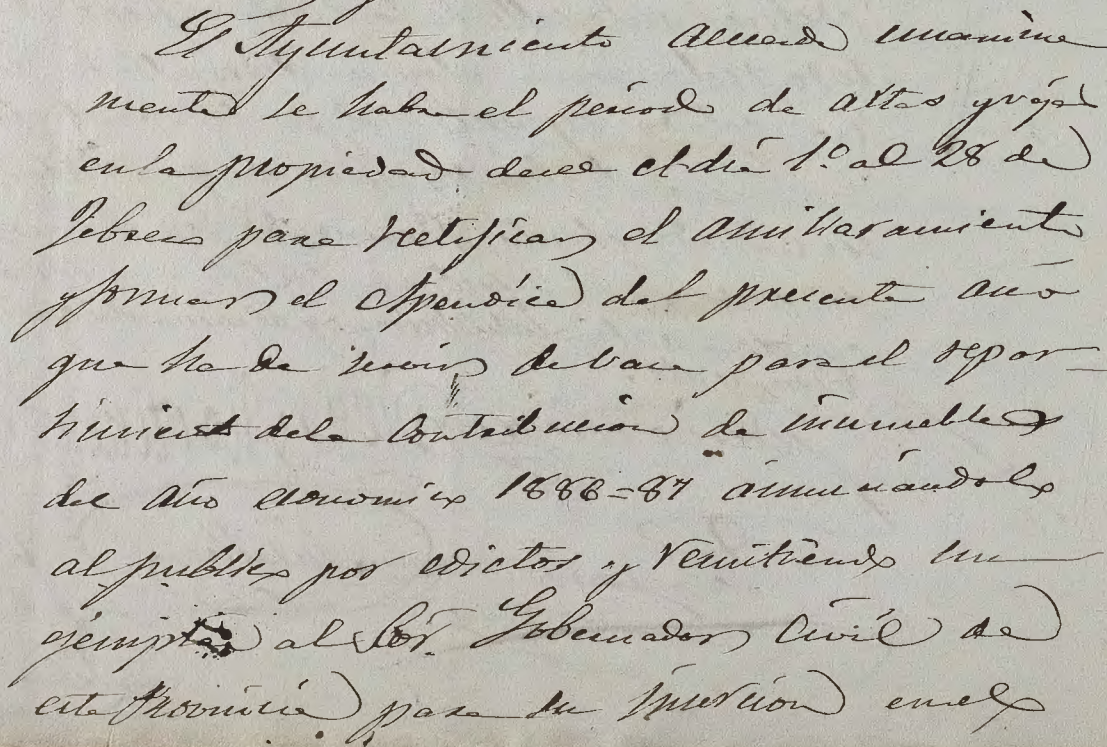 El Ayuntamiento acuerda unanime
mente se habra el periodo de altas y vajas
en la propiedad desde el día 1º al 28 de
Febrero para rectificar el amillaramiento
y formar el Apendice del presente año
que ha de servir de vase para el repar-
timiento de la Contribucion de inmuebles
del año economico 1886=87 anunciandolo
al publico por edictos y remitiendo un
ejemplar al Sor. Gobernador Civil de
esta Provincia para su insercion en el